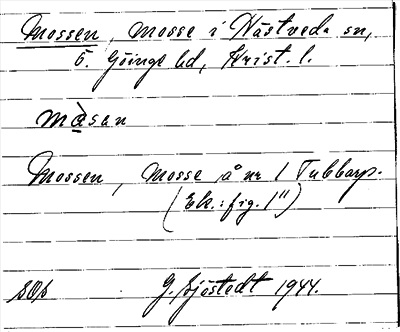 Mossen, Mosse i Nästveds sn,
Ö. Göinge hd, Krist. l.
màsan
Mossen, mosse å nr 1 Tubbarp.
(Ek.: fig. 1")
G. Sjöstedt 1944.